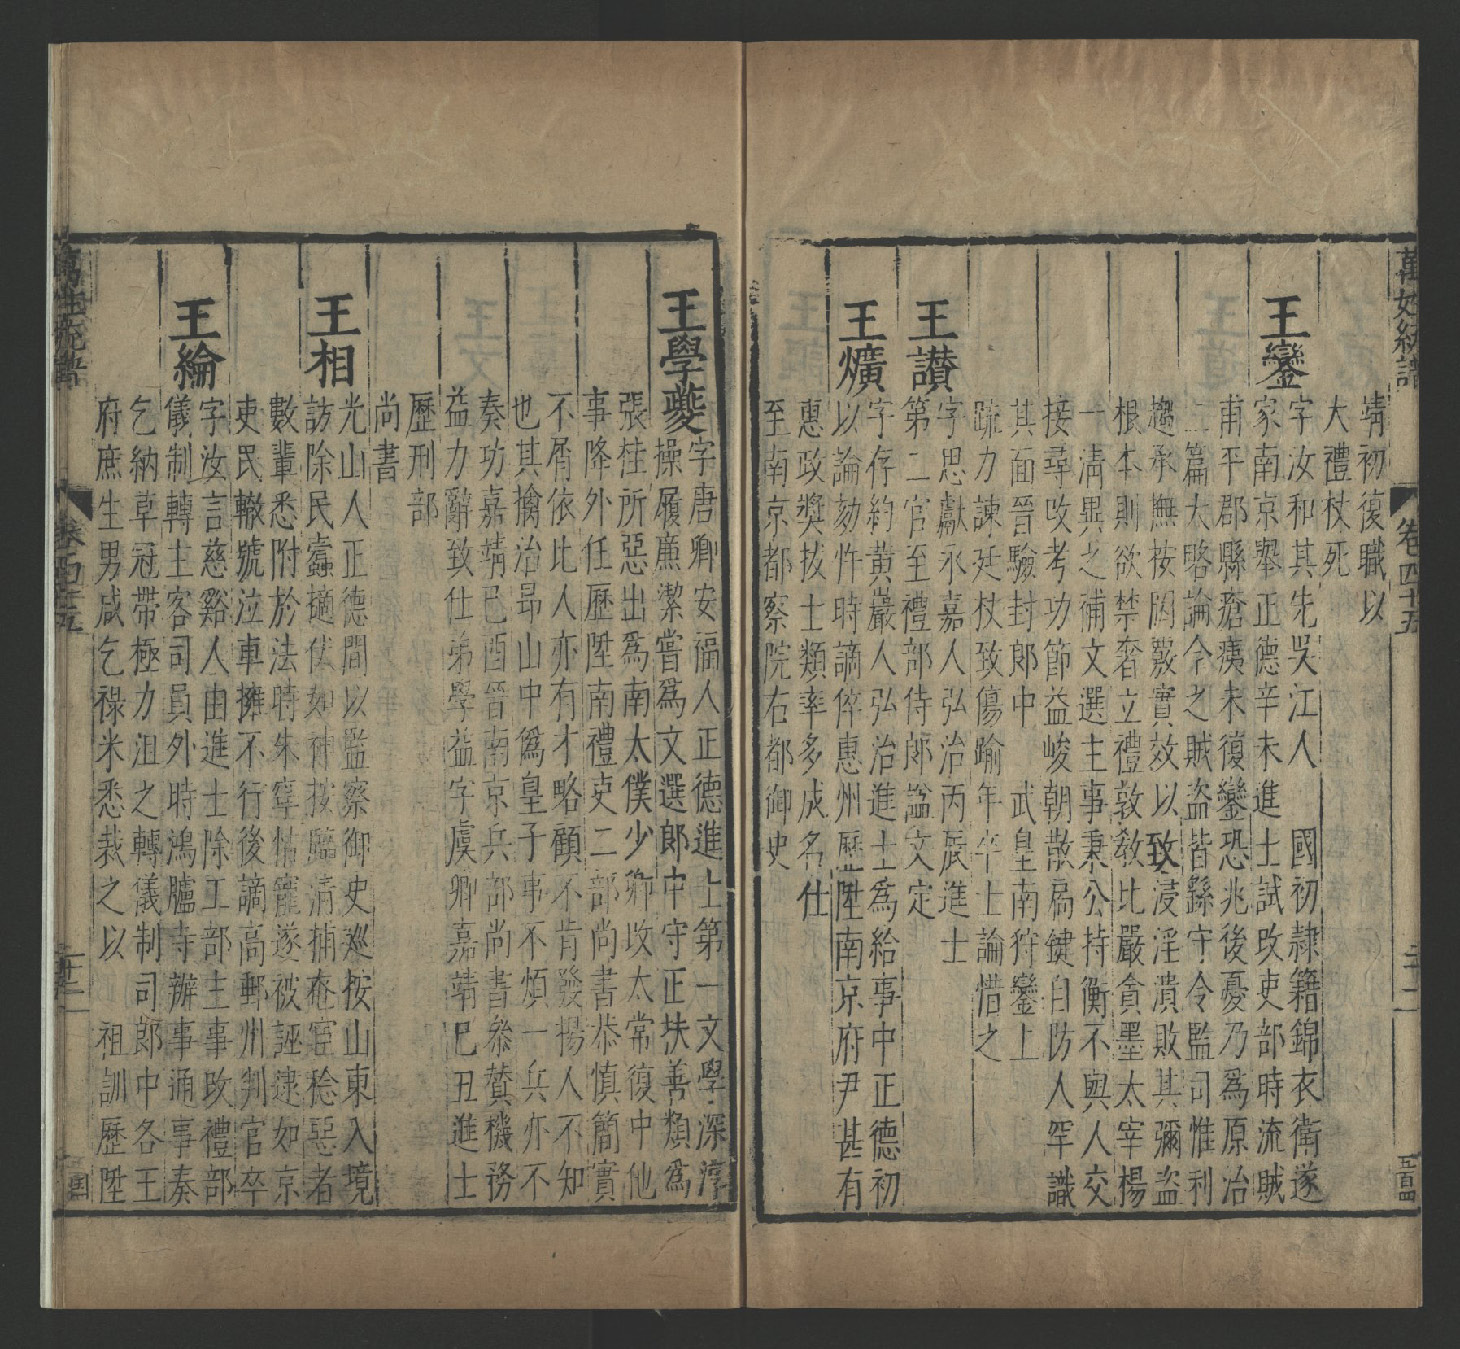 萬姓統譜
卷四十五
二十二
靖初復職以
大禮杖死
王鑾
字汝和其先吳江人 國初隸籍錦衣衛遂
家南京舉正德辛未進士試政吏部時流賊
甫平郡縣瘡痍未復鑾恐兆後憂乃為原冶
二篇大略論今之賊盜皆繇守令監司惟利
趨承撫按罔覈實效以致浸淫潰敗其彌盜
根本則欲禁奢立禮敦教比嚴貪墨太宰楊
一清異之補文選主事秉公持衡不與人交
接尋改考功節益峻朝散扃鍵自防人罕識
其面晉驗封郎中 武皇南狩鑾上
疏力諫廷杖致傷踰年卒士論惜之
王讃
字思獻永嘉人弘治丙辰進士
第二官至禮部侍郎諡文定
王爌
字存約黃巖人弘治進士為給事中正德初
以論劾忤時謫倅惠州歷陞南京府尹甚有
惠政獎拔士類率多成名仕
至南京都察院右都御史
王學夔
字唐卿安福人正德進士第一文學深淳
操履廉潔嘗爲文選郎中守正扶善類爲
張桂所惡出爲南太僕少卿改太常復中他
事降外任歷陞南禮吏二部尚書恭慎簡實
不屑依比人亦有才略顧不肯發揚人不知
也其擒治昂山中僞皇子事不煩一兵亦不
奏功嘉靖己酉晉南京兵部尚書叅賛機務
益力辭致仕弟學益字虞卿嘉靖己丑進士
歷刑部
尚書
王相
光山人正德間以監察御史巡按山東入境
訪除民蠹擿伏如神按臨清捕奄宦稔惡者
數輩悉附於法時朱寧怙寵遂被誣逮如京
吏民轍號泣車擁不行後謫高郵州判官卒
王綸
字汝言慈谿人由進士除工部主事改禮部
儀制轉主客司員外時鴻臚寺辦事通事奏
乞納草冠帶極力沮之轉儀制司郎中各王
府庶生男咸乞祿米悉裁之以 祖訓歷陞
萬姓統譜